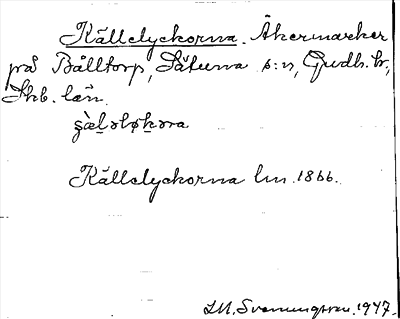 Källelyckorna. Åkermarker
på Bålltorp, Sätuna s:n, Gudh. hr,
Skb. län.
ʂàḻəløḵəra
Källelyckorna lm. 1866.
S.M. Svenungsson. 1947.